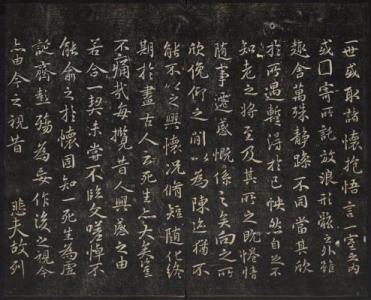 一世或取諸懷抱悟言一室之內
或因寄所託放浪形骸之外雖
趣舍萬殊靜躁不同當其欣
於所遇暫得於己怏然自足不
知老之將至及其所之既惓情
隨事遷感慨係之矣向之所
欣俛仰之間以為陳迹猶不
能不以之興懷況脩短隨化終
期於盡古人云死生亦大矣豈
不痛哉每攬昔人興感之由
若合一契未嘗不臨文嗟悼不
能喻之於懷固知一死生為虛
誕齊彭殤為妄作後之視今
亦由今之視昔 悲夫故列